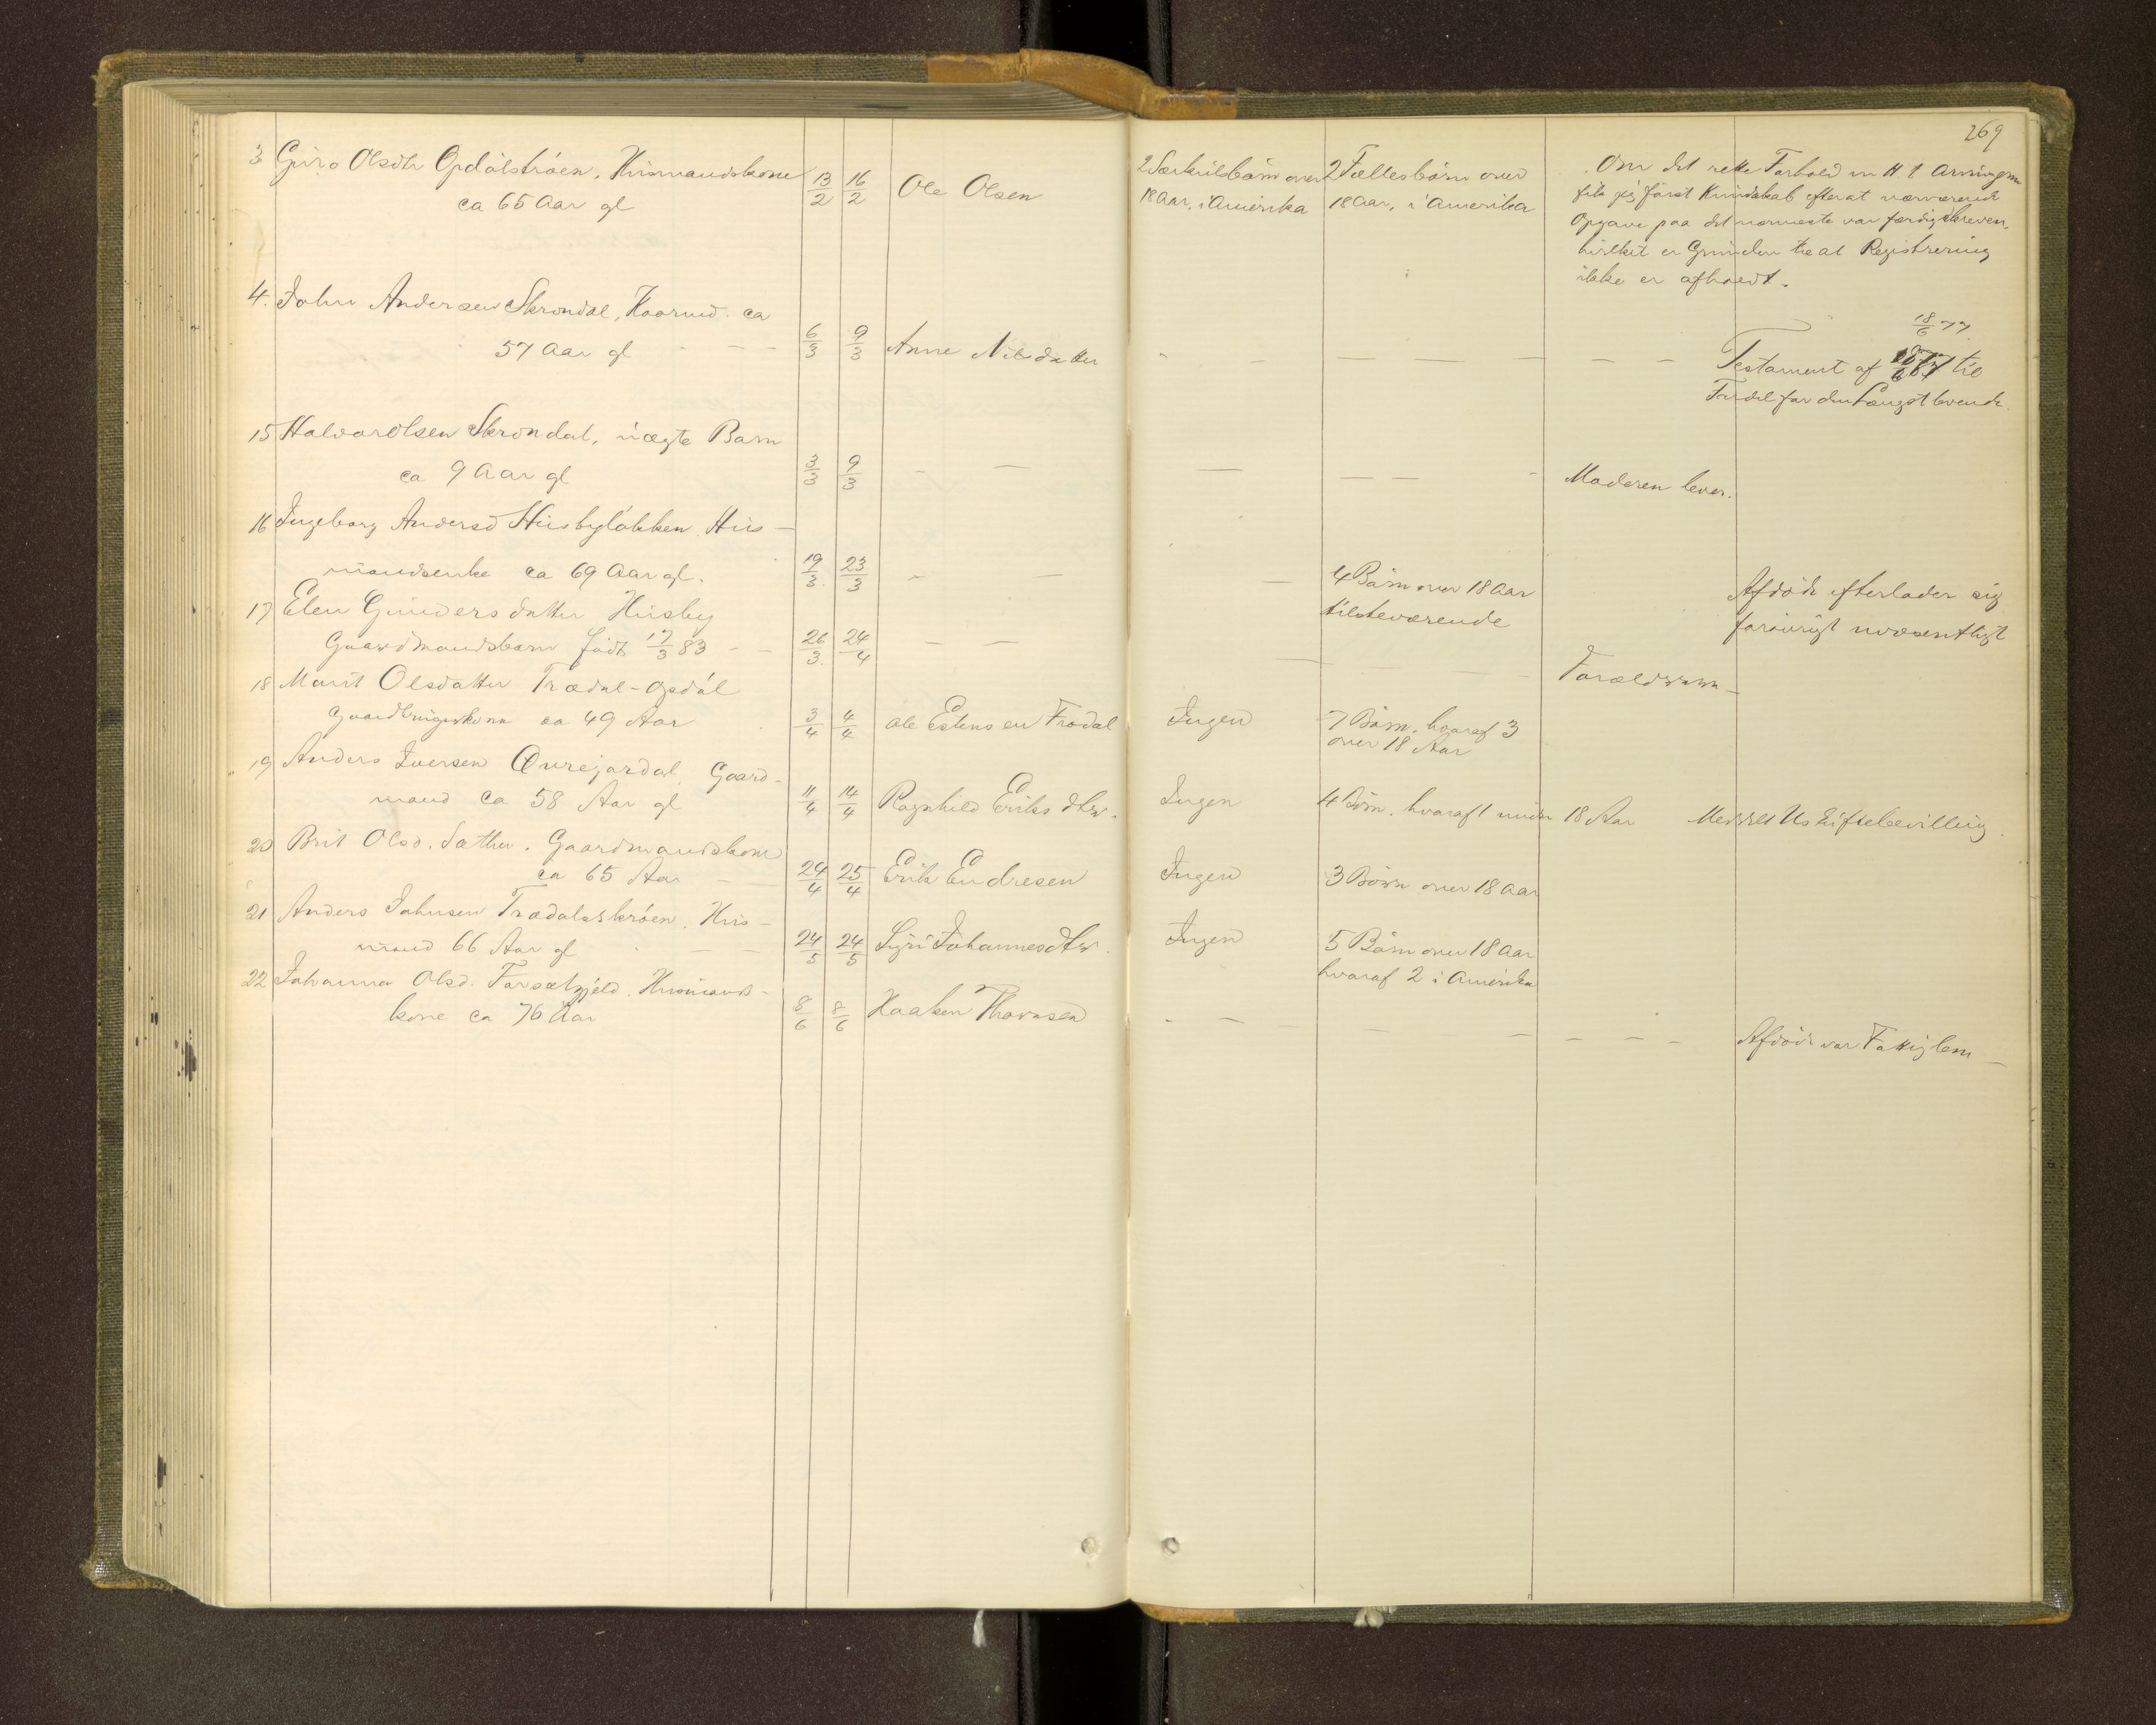 269
3 Guro Olsdtr Opdalströen, Husmandskone
ca 65 Aar gl
13/2 16/2 Ole Olsen
2 Særkuldbörn over
18 Aar, i Amerika
2 Fællesbörn over
18 Aar, i Amerika
Om det rette Forhold m H t Arvingerne
fik jeg först Kundskab efterat nærværende
Opgave paa det nærmeste var færdigskreven,
hvilket er Grunden til at Registrering
ikke er afholdt.
4. John Andersen Skrondal, Kaarmd. ca
57 Aar gl
6/3 9/3 Anne Nilsdatter
18/6 77.
Testament af til
Fordel for den Længstlevende.
15 Halvor Olsen Skrondal, uægte Barn
ca 9 Aar gl
3/3 9/3
Moderen lever.
16 Ingeborg Andersd Husbylökken Hus-
mandsenke ca 69 Aar gl.
19/3. 23/3
4 Börn over 18 Aar
tilsteværende
Afdöde efterlader sig
forövrigt uvæsentligt
17 Elen Gundersdatter Husby
Gaardmandsbarn födt 17/3 83
26/3. 24/4
Forældrene
18 Marit Olsdatter Trædal-Opdal
Gaardbrugerkone ca 49 Aar
3/4 4/4 Ole Estensen Trædal
Ingen
7 Börn, hvoraf 3
over 18 Aar
19 Anders Iversen Gaard-
mand ca 58 Aar gl
11/4 14/4 Ragnhild Eriks dtr.
Ingen
4 Börn, hvoraf 1 under 18 Aar
Meddelt Uskiftebevilling.
20 Brit Olsd. Sæther. Gaardmandskone
ca 65 Aar
24/4 25/4 Erik Endresen
Ingen
3 Börn over 18 Aar
21 Anders Johnsen Trædalsströen, Hus-
mand 66 Aar gl
24/5 24/5 Siri Johannesdtr.
Ingen
5 Börn over 18 Aar
hvoraf 2 i Amerika
22 Johanna Olsd. Husmands-
kone ca 76 Aar
8/6 8/6 Haaken Thoresen
Afdöde var Fattiglem